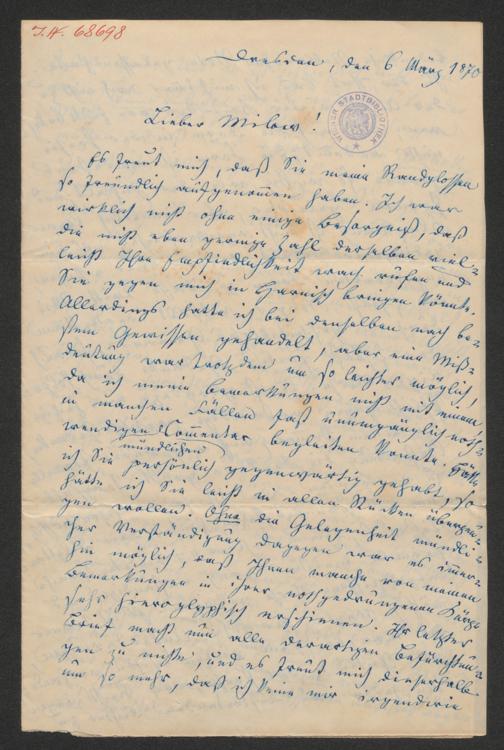 I.N. 68698
Dresden, den 6 März 1870
WIENER STADTBIBLIOTHEK
Lieber Milow!
Es freut mich, daß Sie meine Randglossen
so freundlich aufgenommen haben. Ich war
wirklich nicht ohne einige Besorgniß, daß
die nicht eben geringe Zahl derselben viel-
leicht Ihre Empfindlichkeit wach rufen und
Sie gegen mich in Harnisch bringen könnte.
Allerdings hatte ich bei denselben nach be-
stem Gewissen gehandelt, aber eine Miß-
deutung war trotzdem um so leichter möglich,
da ich meine Bemerkungen nicht mit einem
in manchen Fällen fast unumgänglich noth-
wendigen mündlichen Commentar begleiten konnte. Hätte
ich Sie persönlich gegenwärtig gehabt, so
hätte ich Sie leicht in allen Stücken überzeu-
gen wollen. Ohne die Gelegenheit mündli-
cher Verständigung dagegen war es immer-
hin möglich, daß Ihnen manche von meinen
Bemerkungen in ihrer nothgedrungenen Kürze
sehr hieroglyphisch erschienen. Ihr letzter
Brief macht nun alle derartigen Befürchtun-
gen zu nichte, und es freut mich dieserhalb
um so mehr, daß ich keine mir irgendwie